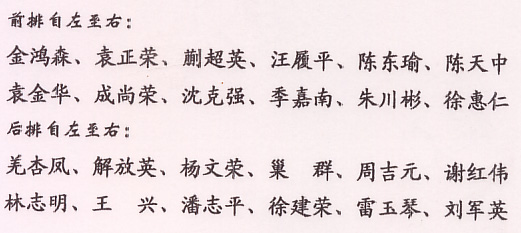 前排自左至右：
金鸿森、袁正荣、蒯超英、汪履平、陈东瑜、陈天中
袁金华、成尚荣、沈克强、季嘉南、朱川彬、徐惠仁
后排自左至右：
羌杏凤、解放英、杨文荣、巢　群、周吉元、谢红伟
林志明、王　兴、潘志平、徐建荣、雷玉琴、刘军英